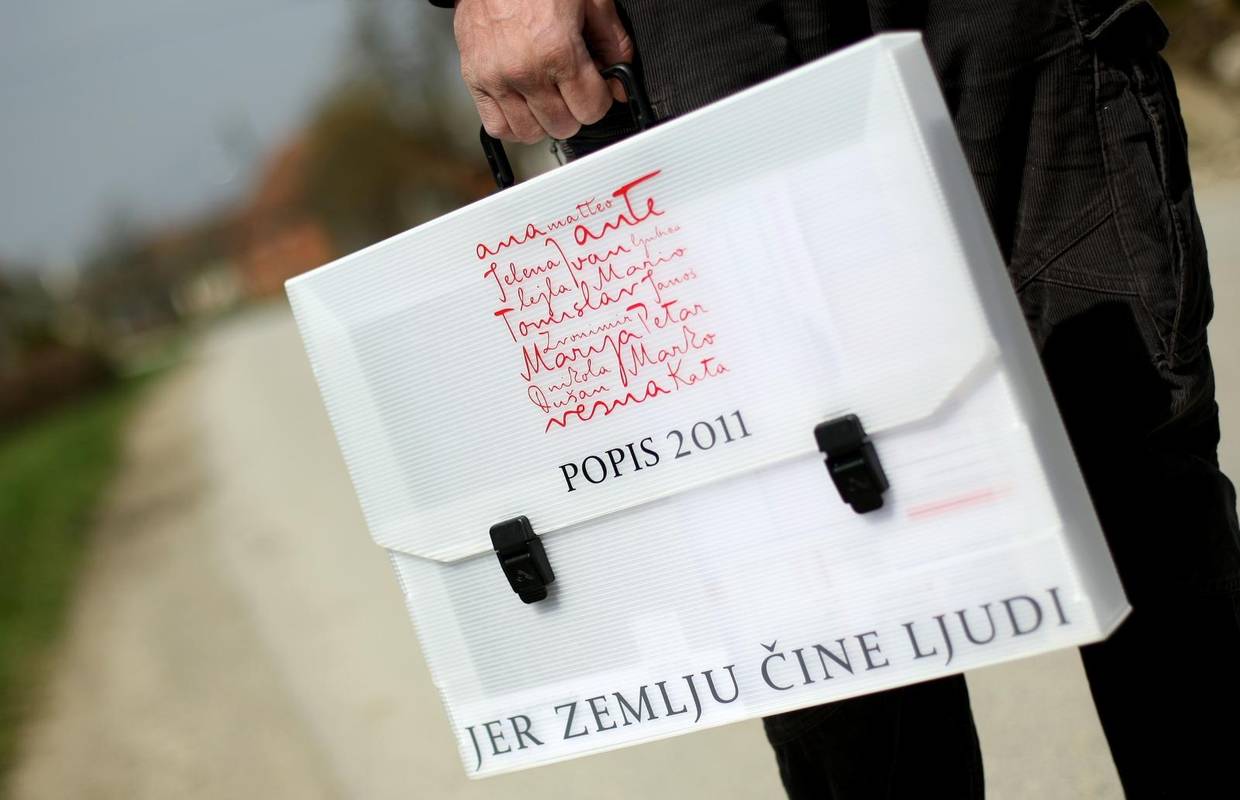 ana matteo
Jelena Jan ante
lejla Ivan ljubica
Tomislav Mario
Janoš
Zvonimir
Marija Petar
nikola
Dušan Marko
vesna Kata
POPIS 2011
JER ZEMLJU ČINE LJUDI